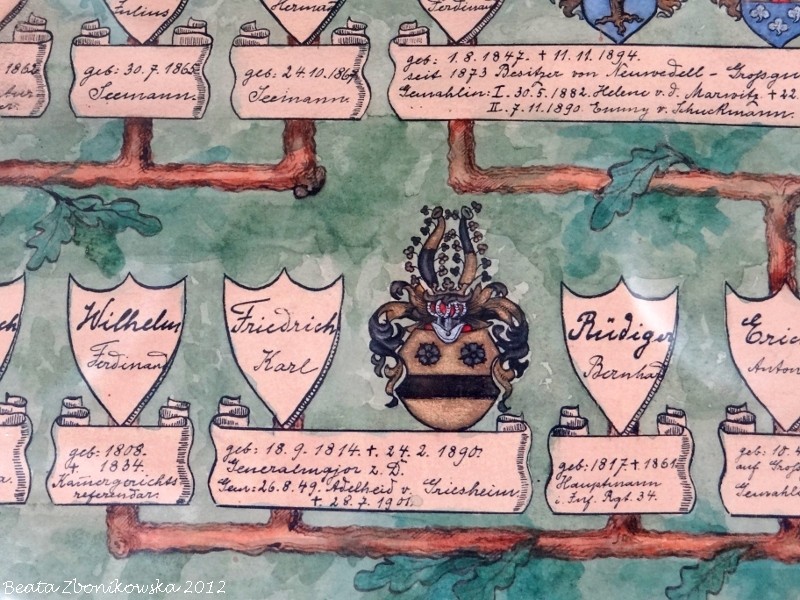 Julius
Herman
Ferdinand
1862
geb: 30.7.1865
Seemann.
geb: 24.10.1867
Seemann.
geb: 1.8.1847. † 11.11.1894.
seit 1873 Besitzer von Neuwedell – Großgu
Gemahlin: I. 30.5.1882. Helene v. d. Marwitz † 22.
II. 7.11.1890. Emmy v. Schuckmann.
Wilhelm
Ferdinand
Friedrich
Karl
Rüdiger
Bernhard
Eric
Anton
geb: 1808.
† 1834.
Kamergerichts
referendar.
geb: 18.9.1814. †. 24.2.1890.
Generalmajor z. D.
Gem: 26.8.49. Adelheid v. Griesheim
† 28.7.1901.
geb: 1817. † 1861
Hauptmann
i. Inf. Rgt. 34.
geb: 10.4
auf Groß
Gemahlin
Beata Zbonikowska 2012